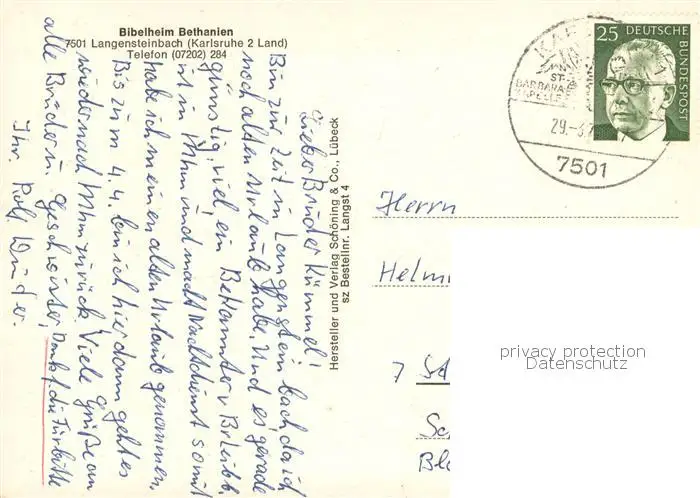 Bibelheim Bethanien
7501 Langensteinbach (Karlsruhe 2 Land)
Telefon (07202) 284
Lieber Bruder Kümmel!
Bin zur Zeit in Langenstein bach, da ich
noch alten Urlaub habe. Und es gerade
günstig, viel, ein Bekannter v Br Leibb.
ist in Mhm und macht Nachtdienst somit
habe ich meinen alten Urlaub genommen.
Bis zum 4.4. bin ich hier dann geht es
wieder nach Mhm zurück. Viele Grüße an
alle Brüder u. Geschwister, Dank f. die Fürbitte
Ihr Rolf
Hersteller und Verlag Schöning & Co., Lübeck
sz Bestellnr. Langst 4
25 DEUTSCHE
BUNDESPOST
ST.
BARBARA-
KAPELLE
29.-3.
7501
Herrn
Helm
7 St
Sc
Blo
privacy protection
Datenschutz